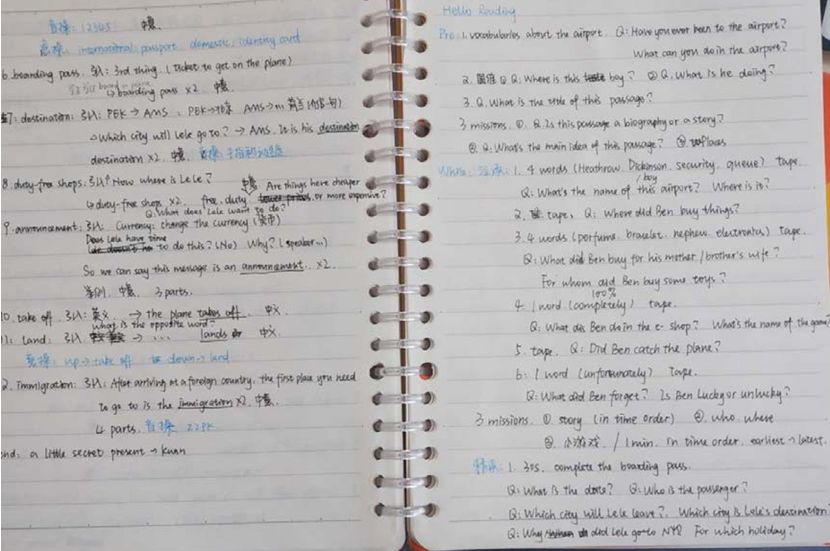 直操: 12345 中操.
意操: international passport, domestic, identity card
6. boarding pass. 引入: 3rd thing. (ticket to get on the plane)
↳ boarding pass ×2. 中操.
7: destination: 引入: PEK → AMS : PEK→ AMS→
↳ Which city will Lele go to? → AMS. It is his destination
destination ×2. 中操.
8. duty-free shops: 引入: Now where is Lele? 中操 Are things here cheaper
↳ duty-free shops ×2. free. duty or more expensive?
Q: What does Lele want to do?
9. announcement: 引入: Currency: change the currency (货币)
Does Lele have time
to do this? (No) Why? (speaker...)
So we can say this message is an announcement. ×2.
举例. 中操. 3 parts.
10. take off. 引入: 英文. → the plane takes off. 中文
What is the opposite word?
11: land: 引入 → ... lands 中文.
意操: up → take off down → land
2. immigration: 引入: After arriving at a foreign country, the first place you need
to go to is the immigration ×2. 中操.
4 parts. 直操 22PK
end: a little secret present → kuan
Hello Reading
Pre: 1. vocabularies about the airport. Q: Have you ever been to the airport?
What can you do in the airport?
2. ① Q: Where is this boy? ② Q: What is he doing?
3. Q: What is the title of this passage?
3 missions. ①. Q: Is this passage a biography or a story?
②. Q: What's the main idea of this passage? ③ places
While: 泛读: 1. 4 words (Heathrow, Dickinson, security, queue) tape.
Q: What's the name of this boy/airport? Where is it?
2. tape. Q: Where did Ben buy things?
3. 4 words (perfume, bracelet, nephew, electronics) tape.
Q: What did Ben buy for his mother / brother's wife?
For whom did Ben buy some toys?
100%
4. 1 word (completely) tape.
Q: What did Ben do in the e-shop? What's the name of the game?
5. tape. Q: Did Ben catch the plane?
6: 1 word (unfortunately) tape.
Q: What did Ben forget? Is Ben lucky or unlucky?
3 missions. ① story (in time order) ②. who. where
③. 小游戏. / 1 min. in time order. earliest → latest.
精读: 1. 30s. complete the boarding pass.
Q: What is the date? Q: Who is the passenger?
Q: Which city will Lele leave? Which city is Lele's destination?
Q: Why did Lele go to NY? For which holiday?